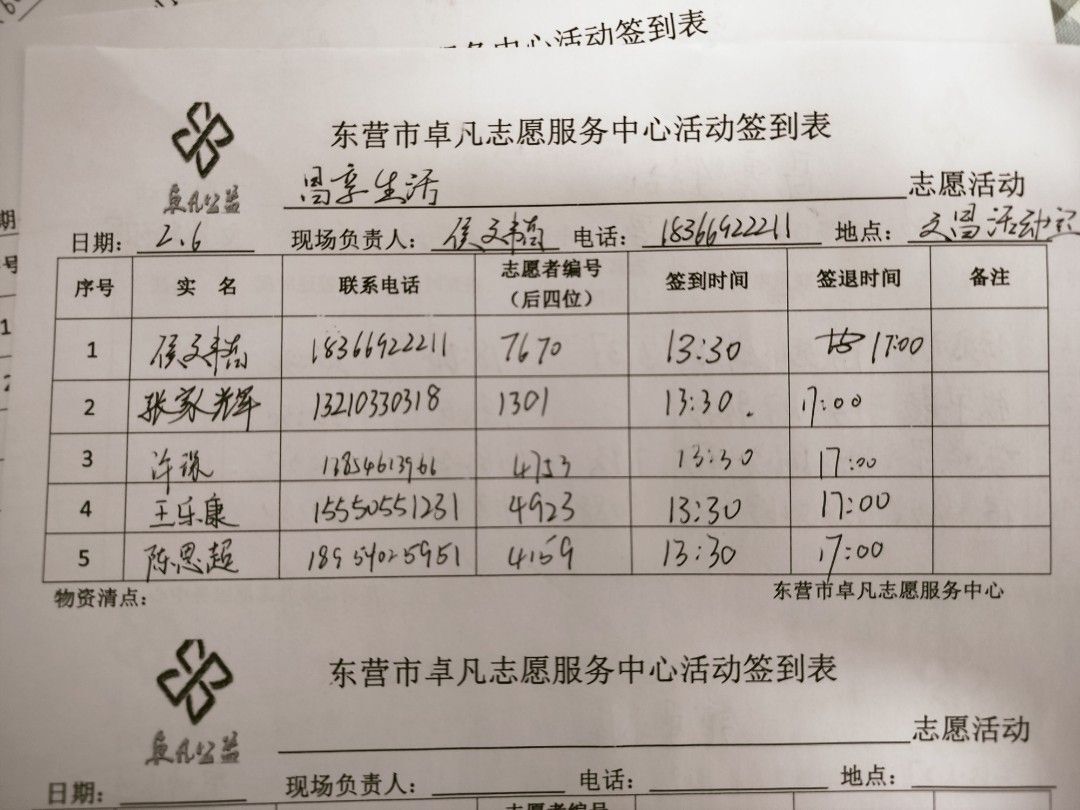 务中心活动签到表
东营市卓凡志愿服务中心活动签到表
卓凡公益
昌享生活 志愿活动
日期: 2.6 现场负责人: 侯文 电话: 18366922211 地点: 文昌活动室
序号 实 名 联系电话 志愿者编号（后四位） 签到时间 签退时间 备注
1 侯文 18366922211 7670 13:30 17:00
2 张家辉 13210330318 1301 13:30. 17:00
3 许 13854613966 4753 13:30 17:00
4 王乐康 15550551231 4923 13:30 17:00
5 陈思超 18954025951 4159 13:30 17:00
物资清点: 东营市卓凡志愿服务中心
东营市卓凡志愿服务中心活动签到表
卓凡公益
志愿活动
日期: 现场负责人: 电话: 地点:
志愿者编号